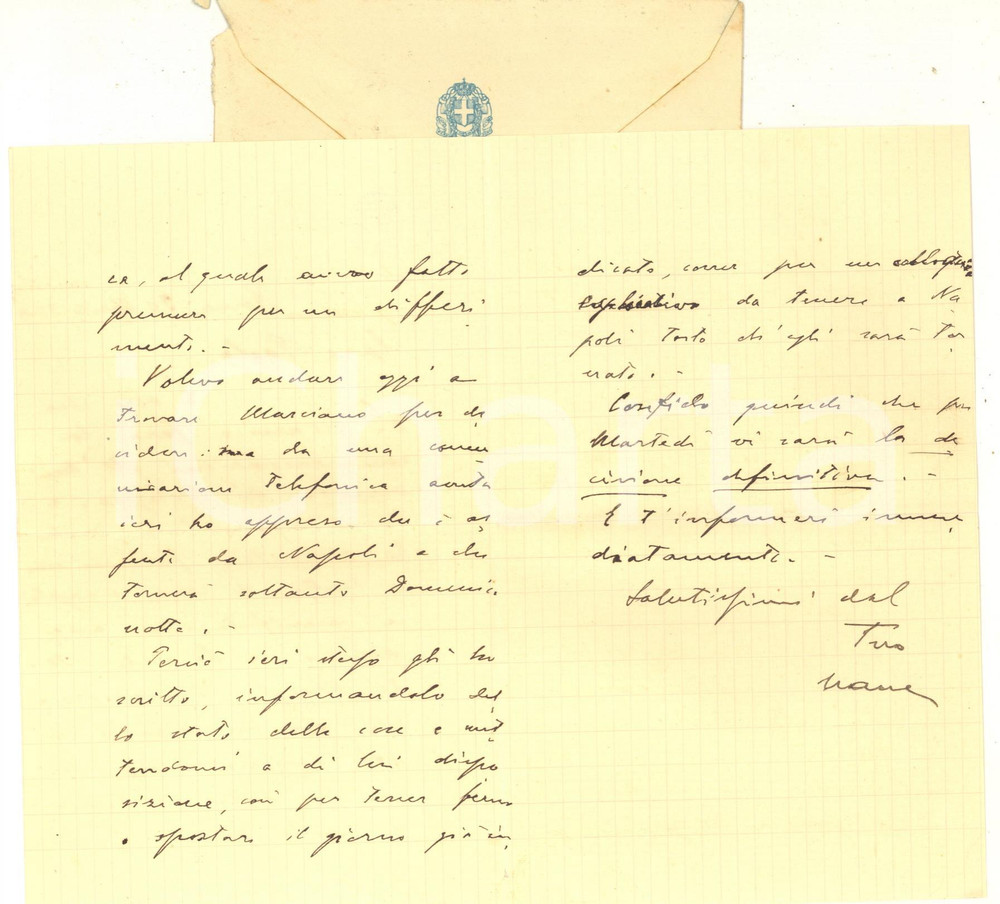 ca, al quale avevo fatto
premura per un differi
mento. -
Volevo andare oggi a
trovare Marciano per de
cidere: ma da una comu
nicazione telefonica avuta
ieri ho appreso che è as
sente da Napoli e che
tornerà soltanto Domenica
notte. -
Perciò ieri stesso gli ho
scritto, informandolo del
lo stato delle cose e met
tendomi a di lui dispo
sizione, così per tener fermo
o spostare il giorno già in
dicato, come per un colloquio
esplicativo da tenere a Na
poli tosto ch'egli sarà tor
nato. -
Confido quindi che per
Martedì vi sarà la de
cisione definitiva. -
E t'informerò imme
diatamente. -
Salutissimi dal
Tuo
iCharta